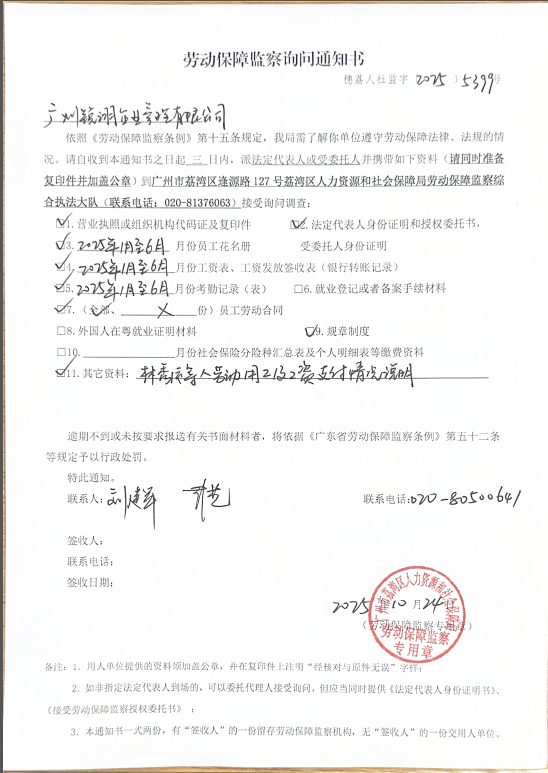 劳动保障监察询问通知书
穗荔人社监字 2025 〕5399号
广州锐翊企业管理有限公司
依照《劳动保障监察条例》第十五条规定，我局需了解你单位遵守劳动保障法律、法规的情
况。请自收到本通知书之日起 三 日内，派法定代表人或受委托人并携带如下资料（请同时准备
复印件并加盖公章）到广州市荔湾区逢源路127号荔湾区人力资源和社会保障局劳动保障监察综
合执法大队（联系电话：020-81376063）接受询问调查：
☑1.营业执照或组织机构代码证及复印件 ☑2.法定代表人身份证明和授权委托书，
☑3.2025年1月至6月 月份员工花名册 受委托人身份证明
☑4.2025年1月至6月 月份工资表、工资发放签收表（银行转账记录）
☑5.2025年1月至6月 月份考勤记录（表） □6.就业登记或者备案手续材料
☑7.（全部、 × 份）员工劳动合同
□8.外国人在粤就业证明材料 ☑9.规章制度
□10. 月份社会保险分险种汇总表及个人明细表等缴费资料
☑11.其它资料：林秀 等人劳动用工及工资支付情况说明
逾期不到或未按要求报送有关书面材料者，将依据《广东省劳动保障监察条例》第五十二条
等规定予以行政处罚。
特此通知。
联系人： 联系电话：020-80500641
签收人：
联系电话：
签收日期：
2025年10月24日
（劳动保障监察专用章）
广州市荔湾区人力资源和社会保障局
劳动保障监察
专用章
备注：1. 用人单位提供的资料须加盖公章，并在复印件上注明“经核对与原件无误”字样；
2. 如非指定法定代表人到场的，可以委托代理人接受询问，但应当同时提供《法定代表人身份证明书》、
《接受劳动保障监察授权委托书》；
3. 本通知书一式两份，有“签收人”的一份留存劳动保障监察机构，无“签收人”的一份交用人单位。